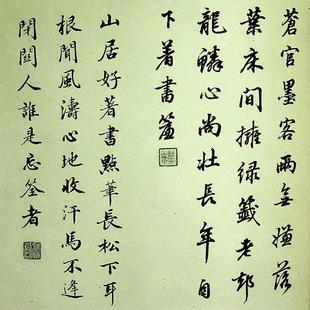 蒼官墨客兩無嫌落
葉床間擁綠籤老却
龍鱗心尚壯長年自
下著書簾
山居好著書點筆長松下耳
根聞風濤心地收汗馬不逢
閉關人誰是忘筌者